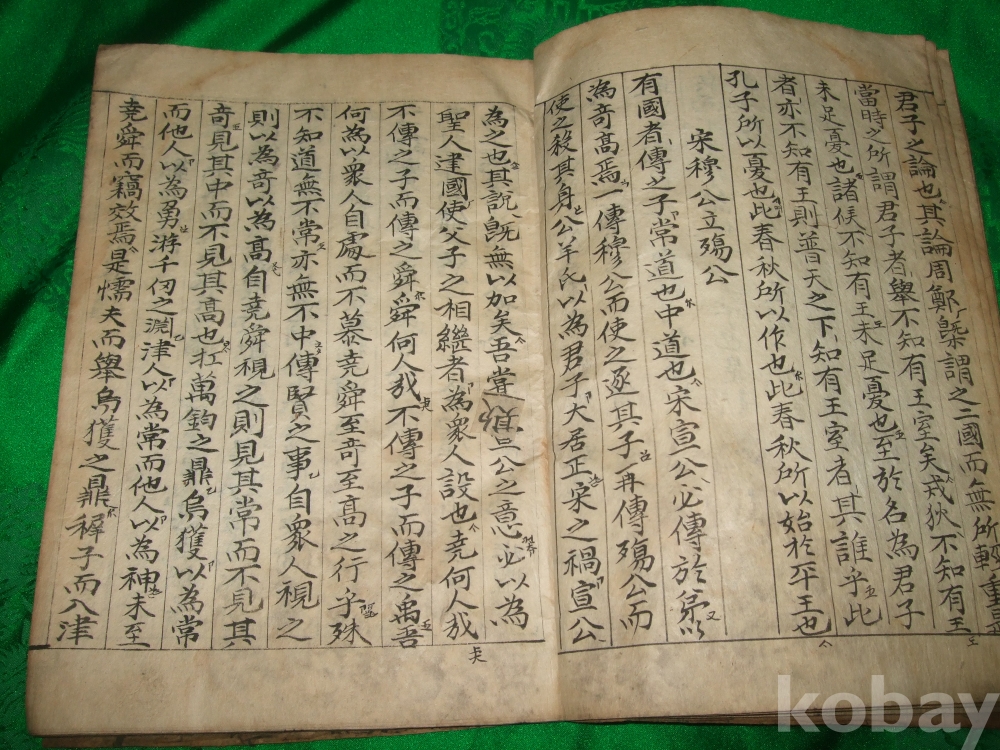 君子之論也其論周鄭槩謂之二國而無所輕重
當時之所謂君子者擧不知有王室矣戎狄不知有王
未足憂也諸侯不知有王未足憂也至於名為君子
者亦不知有王則普天之下知有王室者其誰乎此
孔子所以憂也此春秋所以作也此春秋所以始於平王也
宋穆公立殤公
有國者傳之子常道也中道也宋宣公必傳於弟以
為奇高焉一傳穆公而使之逐其子再傳殤公而
使之殺其身公羊氏以為君子大居正宋之禍宣公
為之也其說旣無以加矣吾嘗 宣公之意必以為
聖人建國使父子之相繼者為衆人設也堯何人哉
不傳之子而傳之舜舜何人哉不傳之子而傳之禹吾
何為以衆人自處而不慕堯舜至奇至高之行乎殊
不知道無不常亦無不中傳賢之事自衆人視之
則以為奇以為高自堯舜視之則見其常而不見其
奇見其中而不見其高也扛萬鈞之鼎烏獲以為常
而他人以為勇游千仞之淵津人以為常而他人以為神未至
堯舜而竊效焉是懦夫而擧烏獲之鼎稺子而入津
kobay